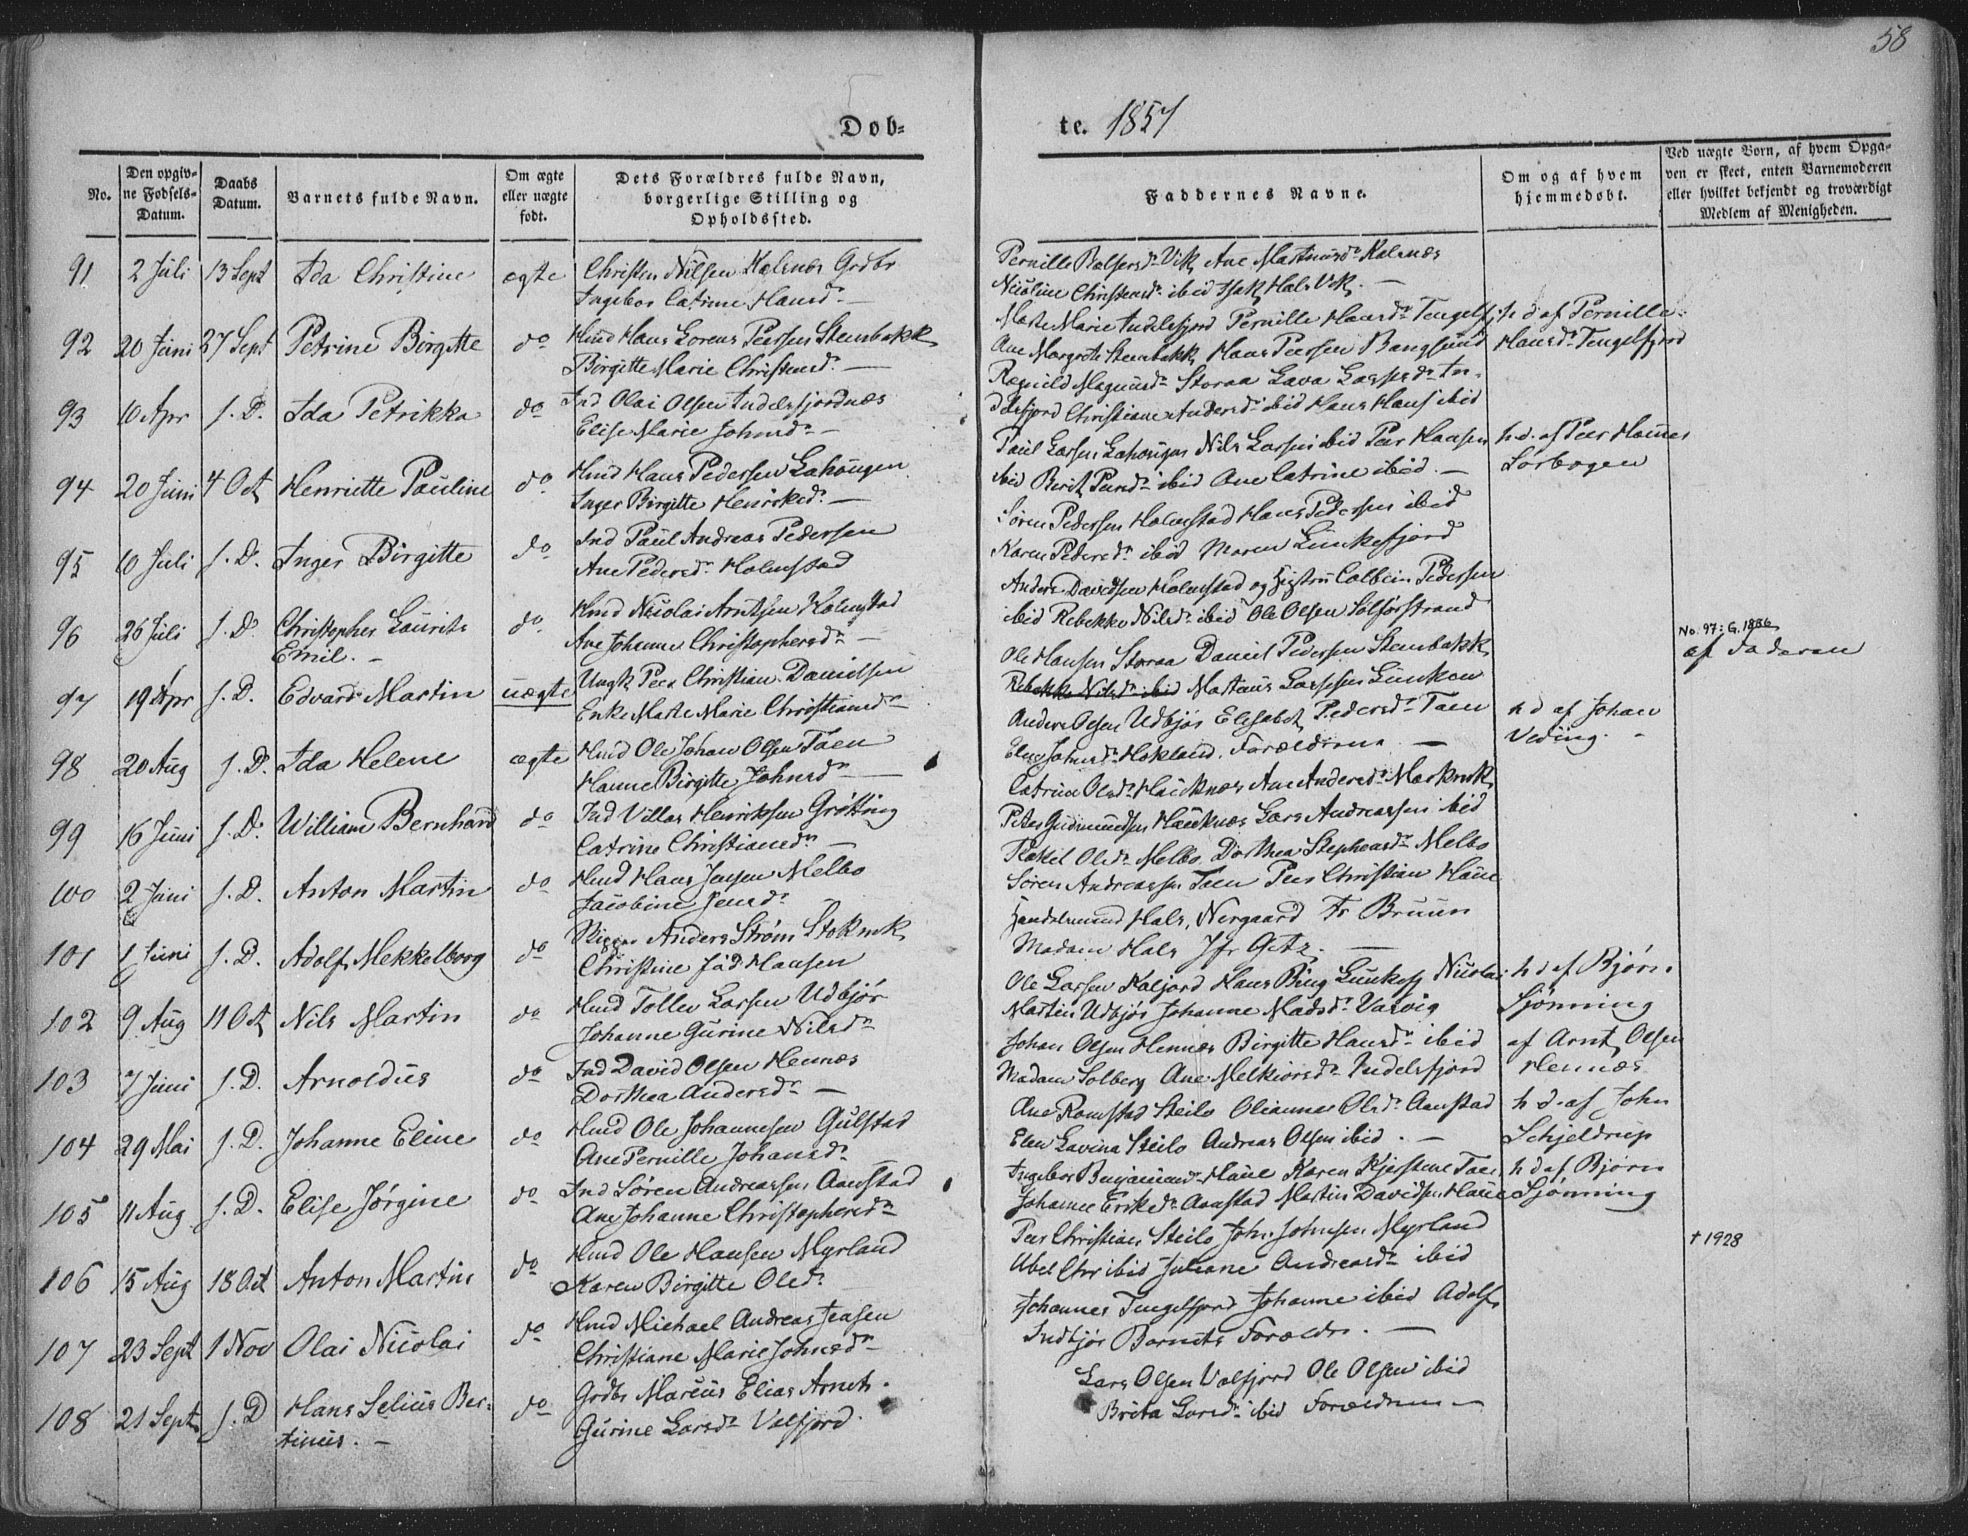 58
Døb-
te. 1857
No.
Den opgiv-
ne Fødsels-
Datum.
Daabs
Datum.
Barnets fulde Navn.
Om ægte
eller uægte
født.
Dets Forældres fulde Navn,
borgerlige Stilling og
Opholdssted.
Faddernes Navne.
Om og af hvem
hjemmedøbt.
Ved uægte Børn, af hvem Opga-
ven er skeet, enten Barnemoderen
eller hvilket bekjendt og troværdigt
Medlem af Menigheden.
91 2 Juli 13 Sept Ida Christine ægte Christen Nilsen Kalsnes Grdbr
Ingebor Catrine Hansd. —
Pernille Vik, Ane Kalsnes
Nicoline ibid Isak Hals Vik. —
92 20 Juni 27 Sept Petrine Birgitte do Hmd Hans Lorens Peersen Stenbakk
Birgitte Marie Christensd. —
Marte Marie Indelsfjord Pernille Hansd. Tengelfj.
Ane Margrete Stenbakk Hans Peersen Bangsund
h d af Pernille
Hansd. Tengelfjord
93 10 Apr s. D. Ida Petrikka do Ind Olai Olsen Indelsfjordnæs
Elise Marie Johnsd. —
Ragnild Magnusd. Storaa Lava Larsesd. In-
delsfjord Christiane Andersd. ibid Hans Hans ibid
94 20 Juni 4 Oct Henriette Pauline do Hmd Hans Pedersen Lahaugen
Inger Birgitte Henriksd. —
Paul Larsen Lahaugen Nils Larsen ibid Peer Hansen
ibid Berit ibid Ane Catrine ibid. —
h. d. af Peer Hannes
Sørbogen
95 10 Juli s. D. Inger Birgitte do Ind Paul Andreas Pedersen
Ane Pedersd. Holmstad
Søren Pedersen Holmstad Hans Pedersen ibid
Karen Pedersd. ibid Maren Lunkefjord
96 26 Juli s. D. Christopher Laurits
Emil. —
do Hmd Nicolai Arntsen Holmstad
Ane Johanne Christophersd. —
Anders Davidsen Holmstad og Hustru Colbein Pedersen
ibid Rebekka Nilsd. ibid Ole Olsen Selforstrand
97 19 Apr s. D. Edvard Martin uægte Ungk Peer Christian Danielsen
Enke Marte Marie Christiansd.
Ole Hansen Storaa Daniel Pedersen Stenbakk
Rebekka Nilsd. ibid Mataus Larsesen Lunkan
No. 97: G. 1886
af Faderen
98 20 Aug s. D. Ida Helene ægte Hmd Ole Johan Olsen Taen
Hanne Birgitte Johnsd. —
Anders Olsen Udbjør Elisabet Pedersd. Taen
Johnsd. Hokland. Forældrene. —
h d af Johan
Veding. -
99 16 Juni s. D. William Bernhard do Ind Villas Henriksen Grøtting
Catrine Christiansd. —
Catrine Olsd. Haucknæs Ane Andersd.
Peter Gudmundsen Haucknæs Lars Andreassen ibid
100 2 Juni s. D. Anton Martin do Hmd Hans Jensen Melbo
Jacobine Jensd. —
Olsd. Melbo, Dorthea Stephensd. Melbo
Søren Andreassen Taen Peer Christian Haue
101 1 Juni s. D. Adolf Mekkelborg do Anders Strøm Stokmk
Christine fød Hansen
Handelsmand Hals, Nergaard Fr Bruun
Madam Hals Jfr Getz. —
102 9 Aug 11 Oct Nils Martin do Hmd Tollev Larsen Udbjør
Johanne Gurine Nilsd.
Ole Larsen Kaljord Hans Bing Lunkefj Nicolai
Martin Udbjør Johanne Madsd. Vasvig
h d af Bjørn
Sjønning
103 7 Juni s. D. Arnoldus do Ind David Olsen Hennæs
Dorthea Andersd. —
Johan Olsen Hennæs Birgitte Hansd. ibid
Madam Solberg Ane Melkiorsd. Indelsfjord
af Arnt Olsen
Hennæs
104 29 Mai s. D. Johanne Eline do Hmd Ole Johannesen Gulstad
Ane Pernille Johansd. —
Ane Romstad Steilo Olianna Olsd. Aanstad
Elen Lavina Steilo Andreas Olsen ibid. —
h d. af John
Schjeldrup
105 11 Aug s. D. Elise Jørgine do Ind Søren Andreassen Aanstad
Ane Johanne Christophersd.
Ingebor Haue Karen Kjerstine Taen
Johannes Aanstad Martin Davidsen Haue
h d af Bjørn
Sjønning
106 15 Aug 18 Oct Anton Martin do Hmd Ole Hansen Myrland
Karen Birgitte Olsd.
Peer Christian Steilo John Johnsen Myrland
ibid Juliane Andreasd. ibid
† 1928
107 23 Sept 1 Nov Olai Nicolai do Hmd Michael Andreas Jensen
Christiane Marie Johnsd.
Johannes Tengelfjord Johanne ibid Adolf
Indbjør Barnets Forældre. —
108 21 Sept s. D Hans Selius Ber-
tinus. —
do Grdbr Marcus Elias Arnets.
Gurine Larsd. Valfjord.
Lars Olsen Valfjord Ole Olsen ibid
Brita Larsd. ibid Forældrene —